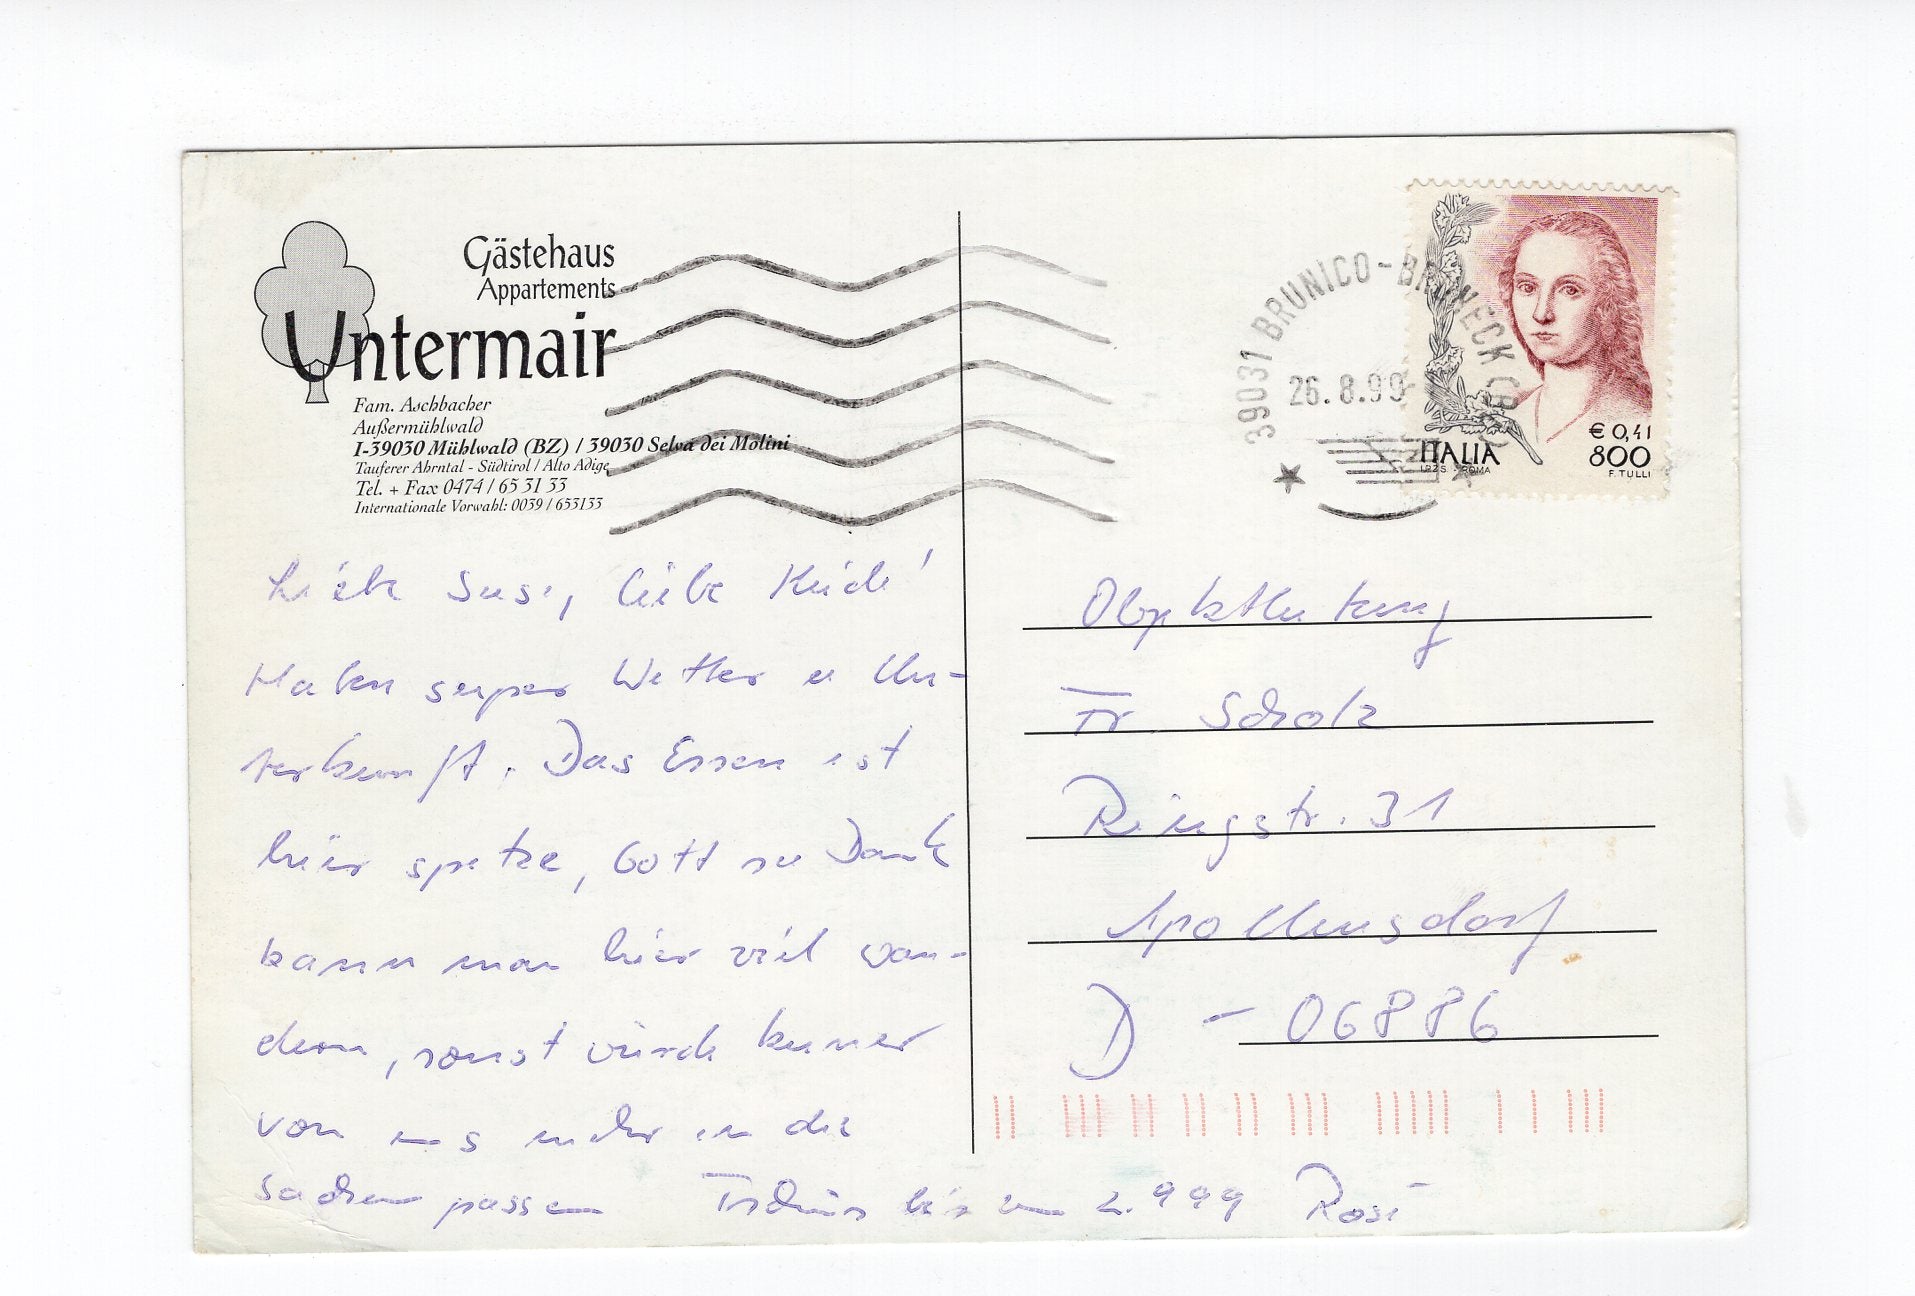 Gästehaus
Appartements
Untermair
Fam. Aschbacher
Außermühlwald
I-39030 Mühlwald (BZ) / 39030 Selva dei Molini
Tauferer Ahrntal - Südtirol / Alto Adige
Tel. + Fax 0474 / 65 31 33
Internationale Vorwahl: 0039 / 653133
39031 BRUNICO - BRUNECK
26.8.99
ITALIA
I.P.Z.S. ROMA
€ 0,41
800
F. TULLI
Liebe Susi, liebe Heide!
Haben super Wetter u Un-
terkunft. Das Essen ist
hier spitze, Gott su Dank
kann man hier viel wan-
dern, sonst würde keiner
von uns mehr in die
Sachen passen Tschüs bis 2.9 99 Rosi
Objektleitung
Fr Scholz
Ringstr. 31
Apollensdorf
D - 06886